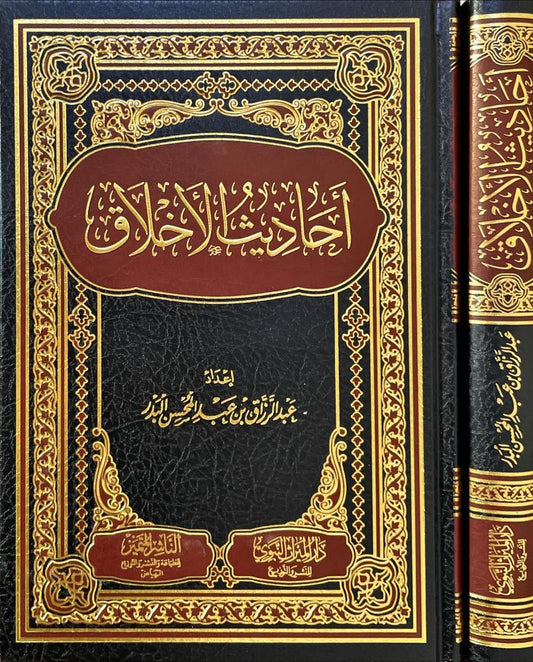 أحاديث الأخلاق
إعداد
عبد الرزاق بن عبد المحسن البدر
دار الميراث النبوي
للنشر والتوزيع
الناشر المتميز
للطباعة والنشر والتوزيع
الرياض
أحاديث الأخلاق
عبد الرزاق بن عبد المحسن البدر
دار الميراث النبوي
للنشر والتوزيع